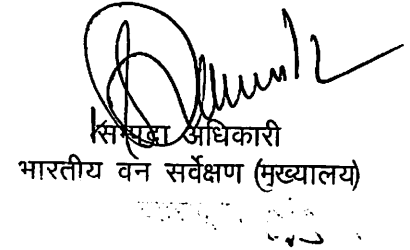 सम्पदा अधिकारी
भारतीय वन सर्वेक्षण (मुख्यालय)